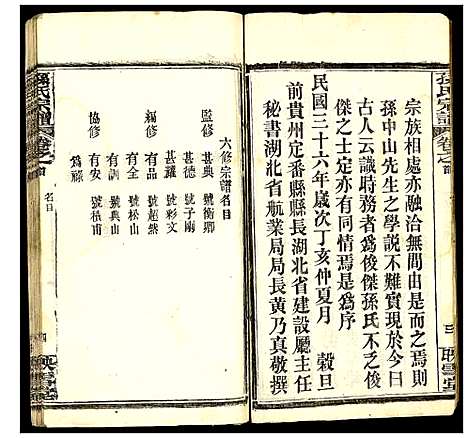 孫氏宗譜 卷之首
三 映雪堂
宗族相處亦融洽無間由是而之焉則
孫中山先生之學說不難實現於今日
古人云識時務者為俊傑孫氏不乏俊
傑之士定亦有同情焉是為序
民國三十六年歲次丁亥仲夏月 穀旦
前貴州定番縣縣長湖北省建設廳主任
秘書湖北省航業局局長黃乃真敬撰
六修宗譜名目
監修 甚典 號衡卿
甚德 號子爾
甚耀 號彩文
編修 有品 號超然
有全 號松山
有訓 號典山
協修 有安 號植甫
為籐
孫氏宗譜 卷之首 名目
四 映雪堂